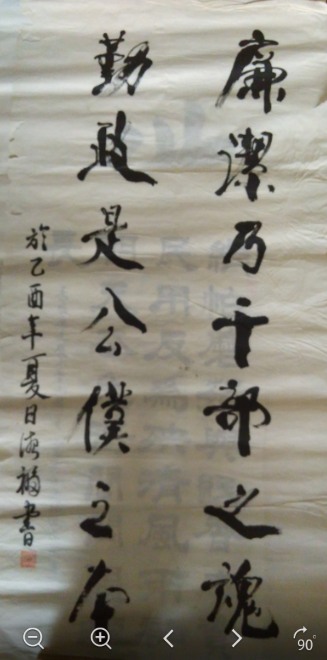 廉潔乃干部之魂
勤政是公僕之
於乙酉年夏日海福書
90°